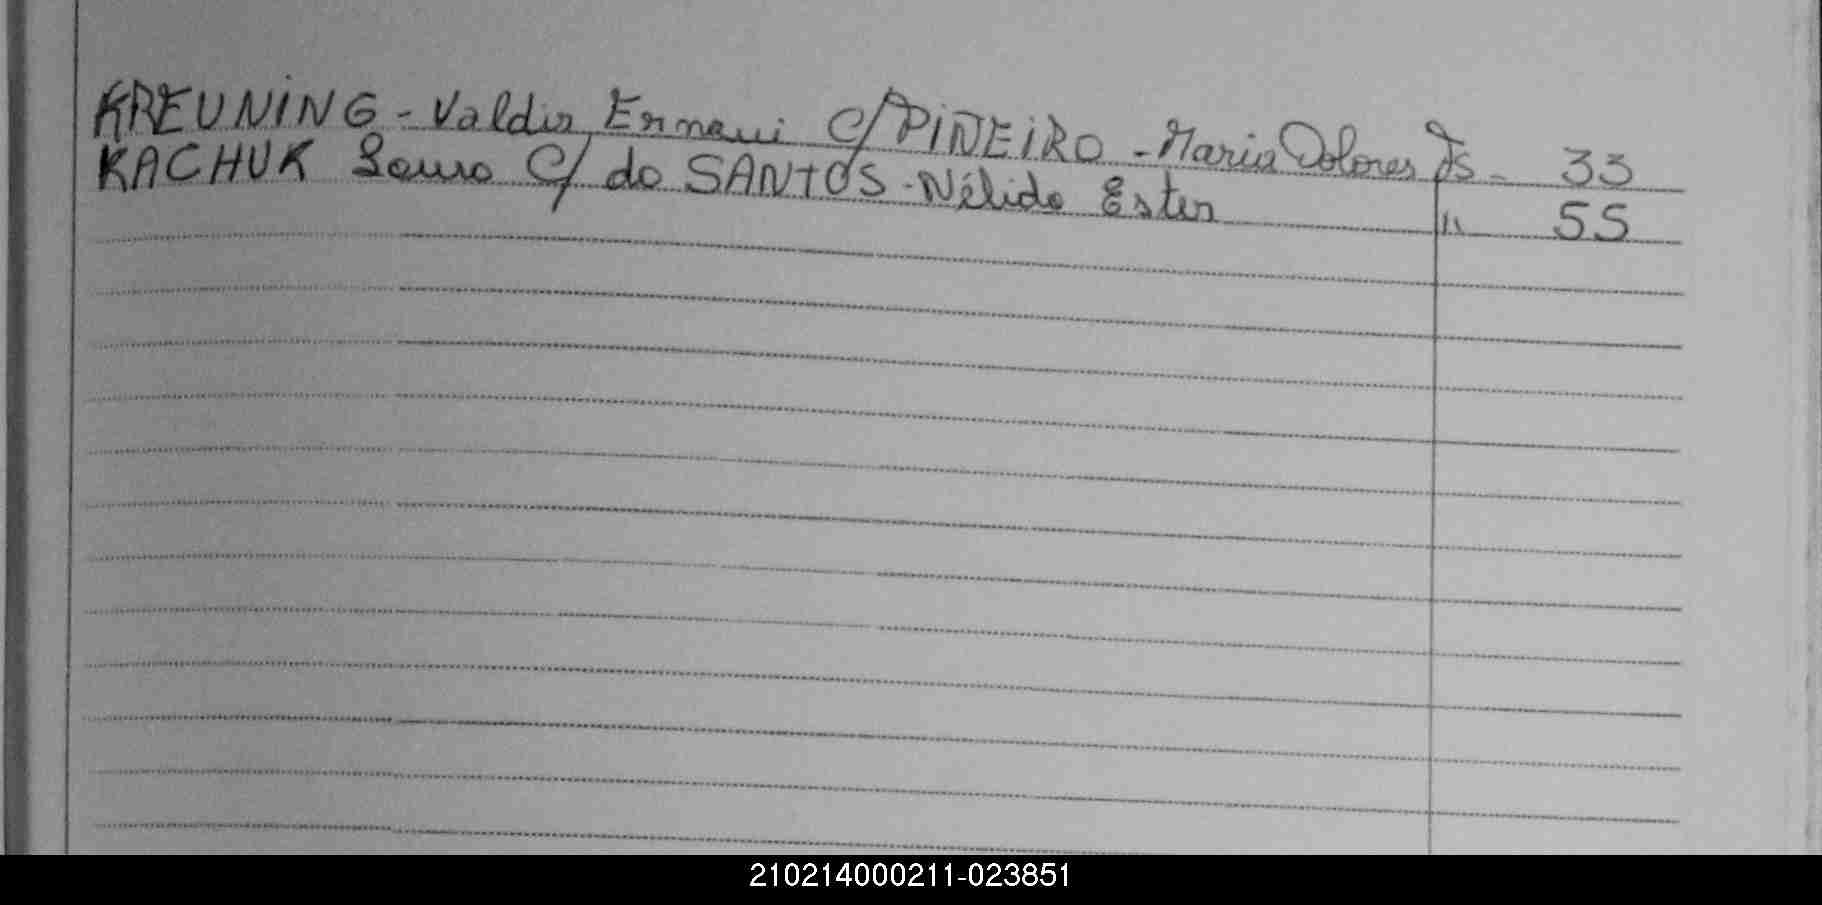 KREUNING - Valdir Ernani C/ PIÑEIRO - Maria Dolores Fs - 33
KACHUK Lauro C/ do SANTOS - Nélida Ester " 55
210214000211-023851